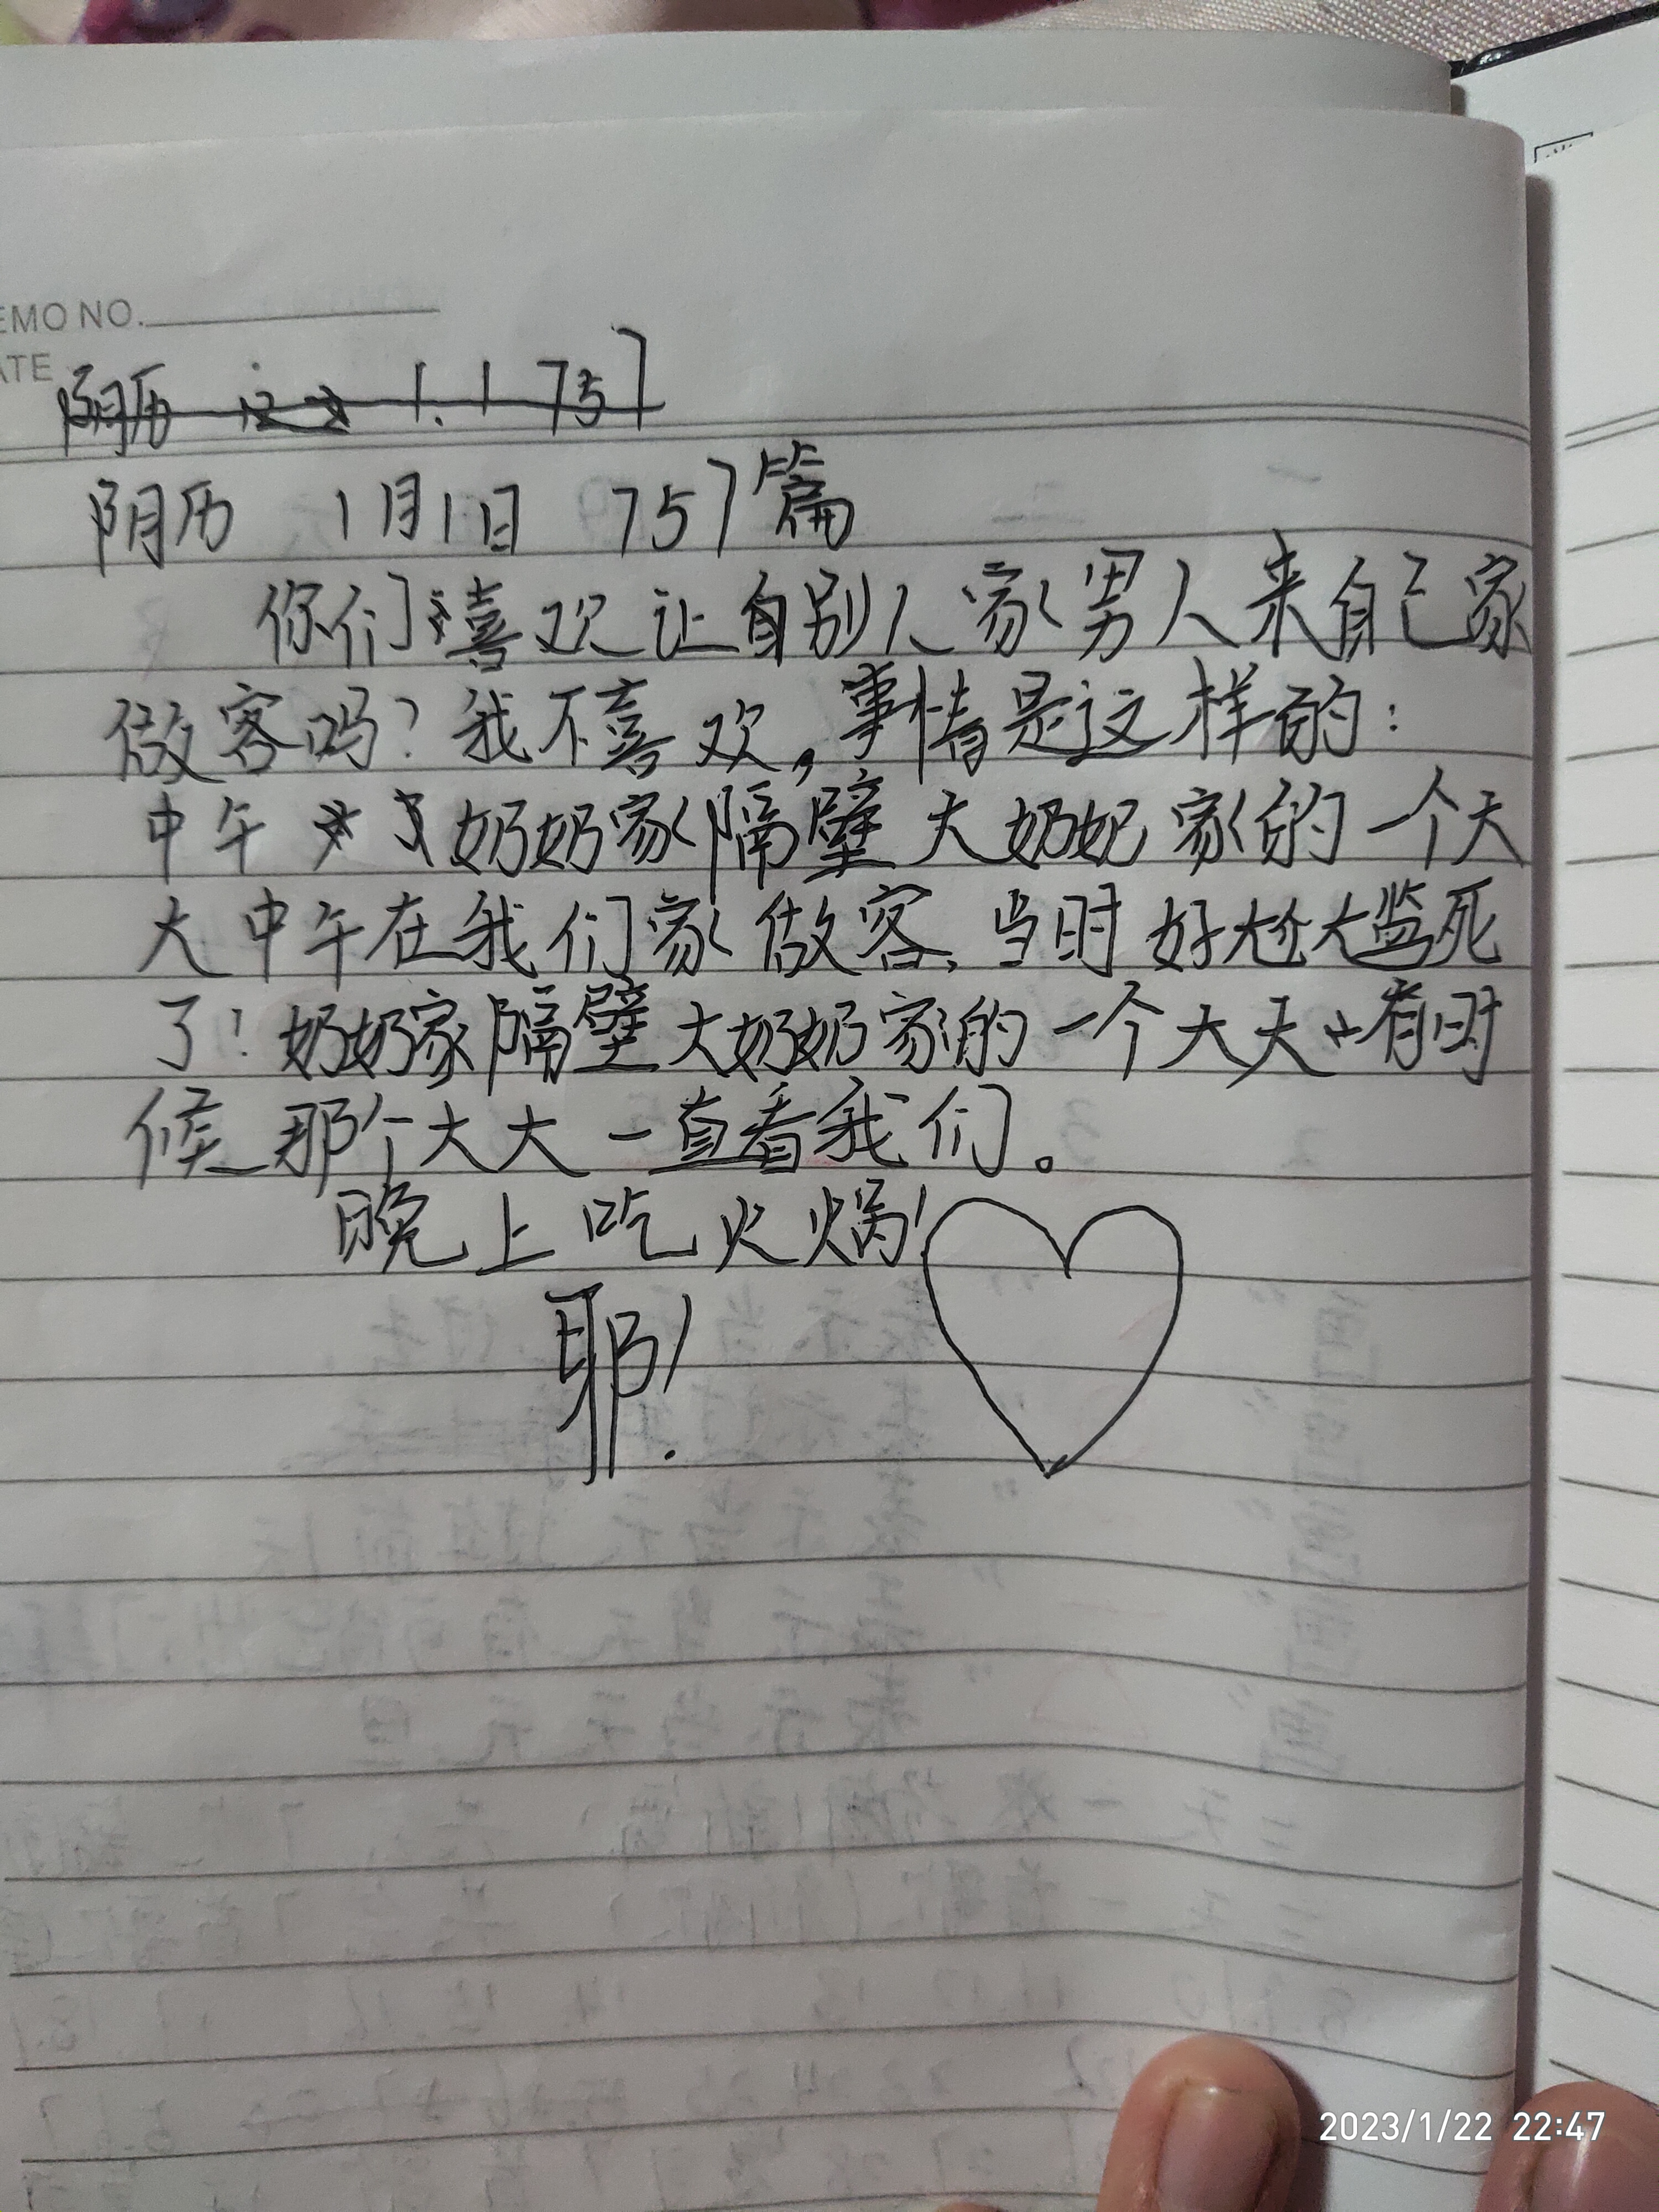 EMO NO.
ATE
阴历 1.1 757
阴历 1月1日 757篇
你们喜欢让别人家男人来自己家
做客吗？我不喜欢，事情是这样的：
中午 奶奶家隔壁大奶奶家的一个大
大中午在我们家做客，当时好尴尬死
了！奶奶家隔壁大奶奶家的一个大大有时
候那个大大一直看我们。
晚上吃火锅！
耶！
2023/1/22 22:47